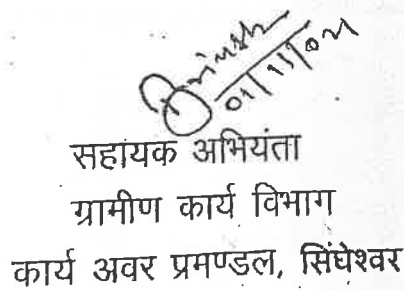 सहायक अभियंता
ग्रामीण कार्य विभाग
कार्य अवर प्रमण्डल, सिंघेश्वर